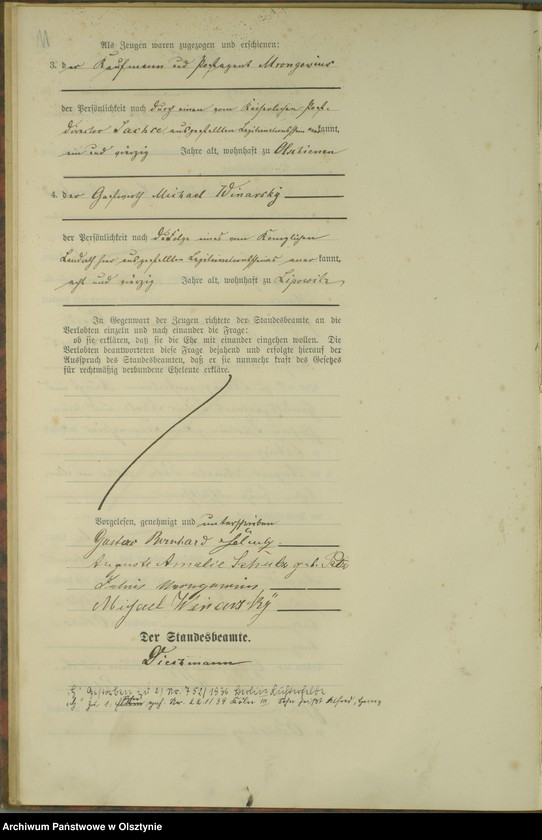 Als Zeugen waren zugezogen und erschienen:
3. der Kaufmann und Postagent Mrongowius
der Persönlichkeit nach durch einen vom Kaiserlichen Post-
director Sachse ausgestellten Legitimationsschein anerkannt,
ein und vierzig Jahre alt, wohnhaft zu Olschienen
4. der Gastwirth Michael Winarsky
der Persönlichkeit nach zufolge eines vom Königlichen
Landrath hier ausgestellten Legitimationsscheines anerkannt,
acht und vierzig Jahre alt, wohnhaft zu Lipowitz
In Gegenwart der Zeugen richtete der Standesbeamte an die
Verlobten einzeln und nach einander die Frage:
ob sie erklären, daß sie die Ehe mit einander eingehen wollen. Die
Verlobten beantworteten diese Frage bejahend und erfolgte hierauf der
Ausspruch des Standesbeamten, daß er sie nunmehr kraft des Gesetzes
für rechtmäßig verbundene Eheleute erkläre.
Vorgelesen, genehmigt und unterschrieben
Gustav Bernhard
Auguste Amalie geb.
Julius Mrongowius
Michael Winarsky
Der Standesbeamte.
Dietzmann
Gestorben zu 2) Nr. 752/1936 Berlin Lichterfelde
zu 1. Nr. Köln Sohn heißt Alfred,
Archiwum Państwowe w Olsztynie